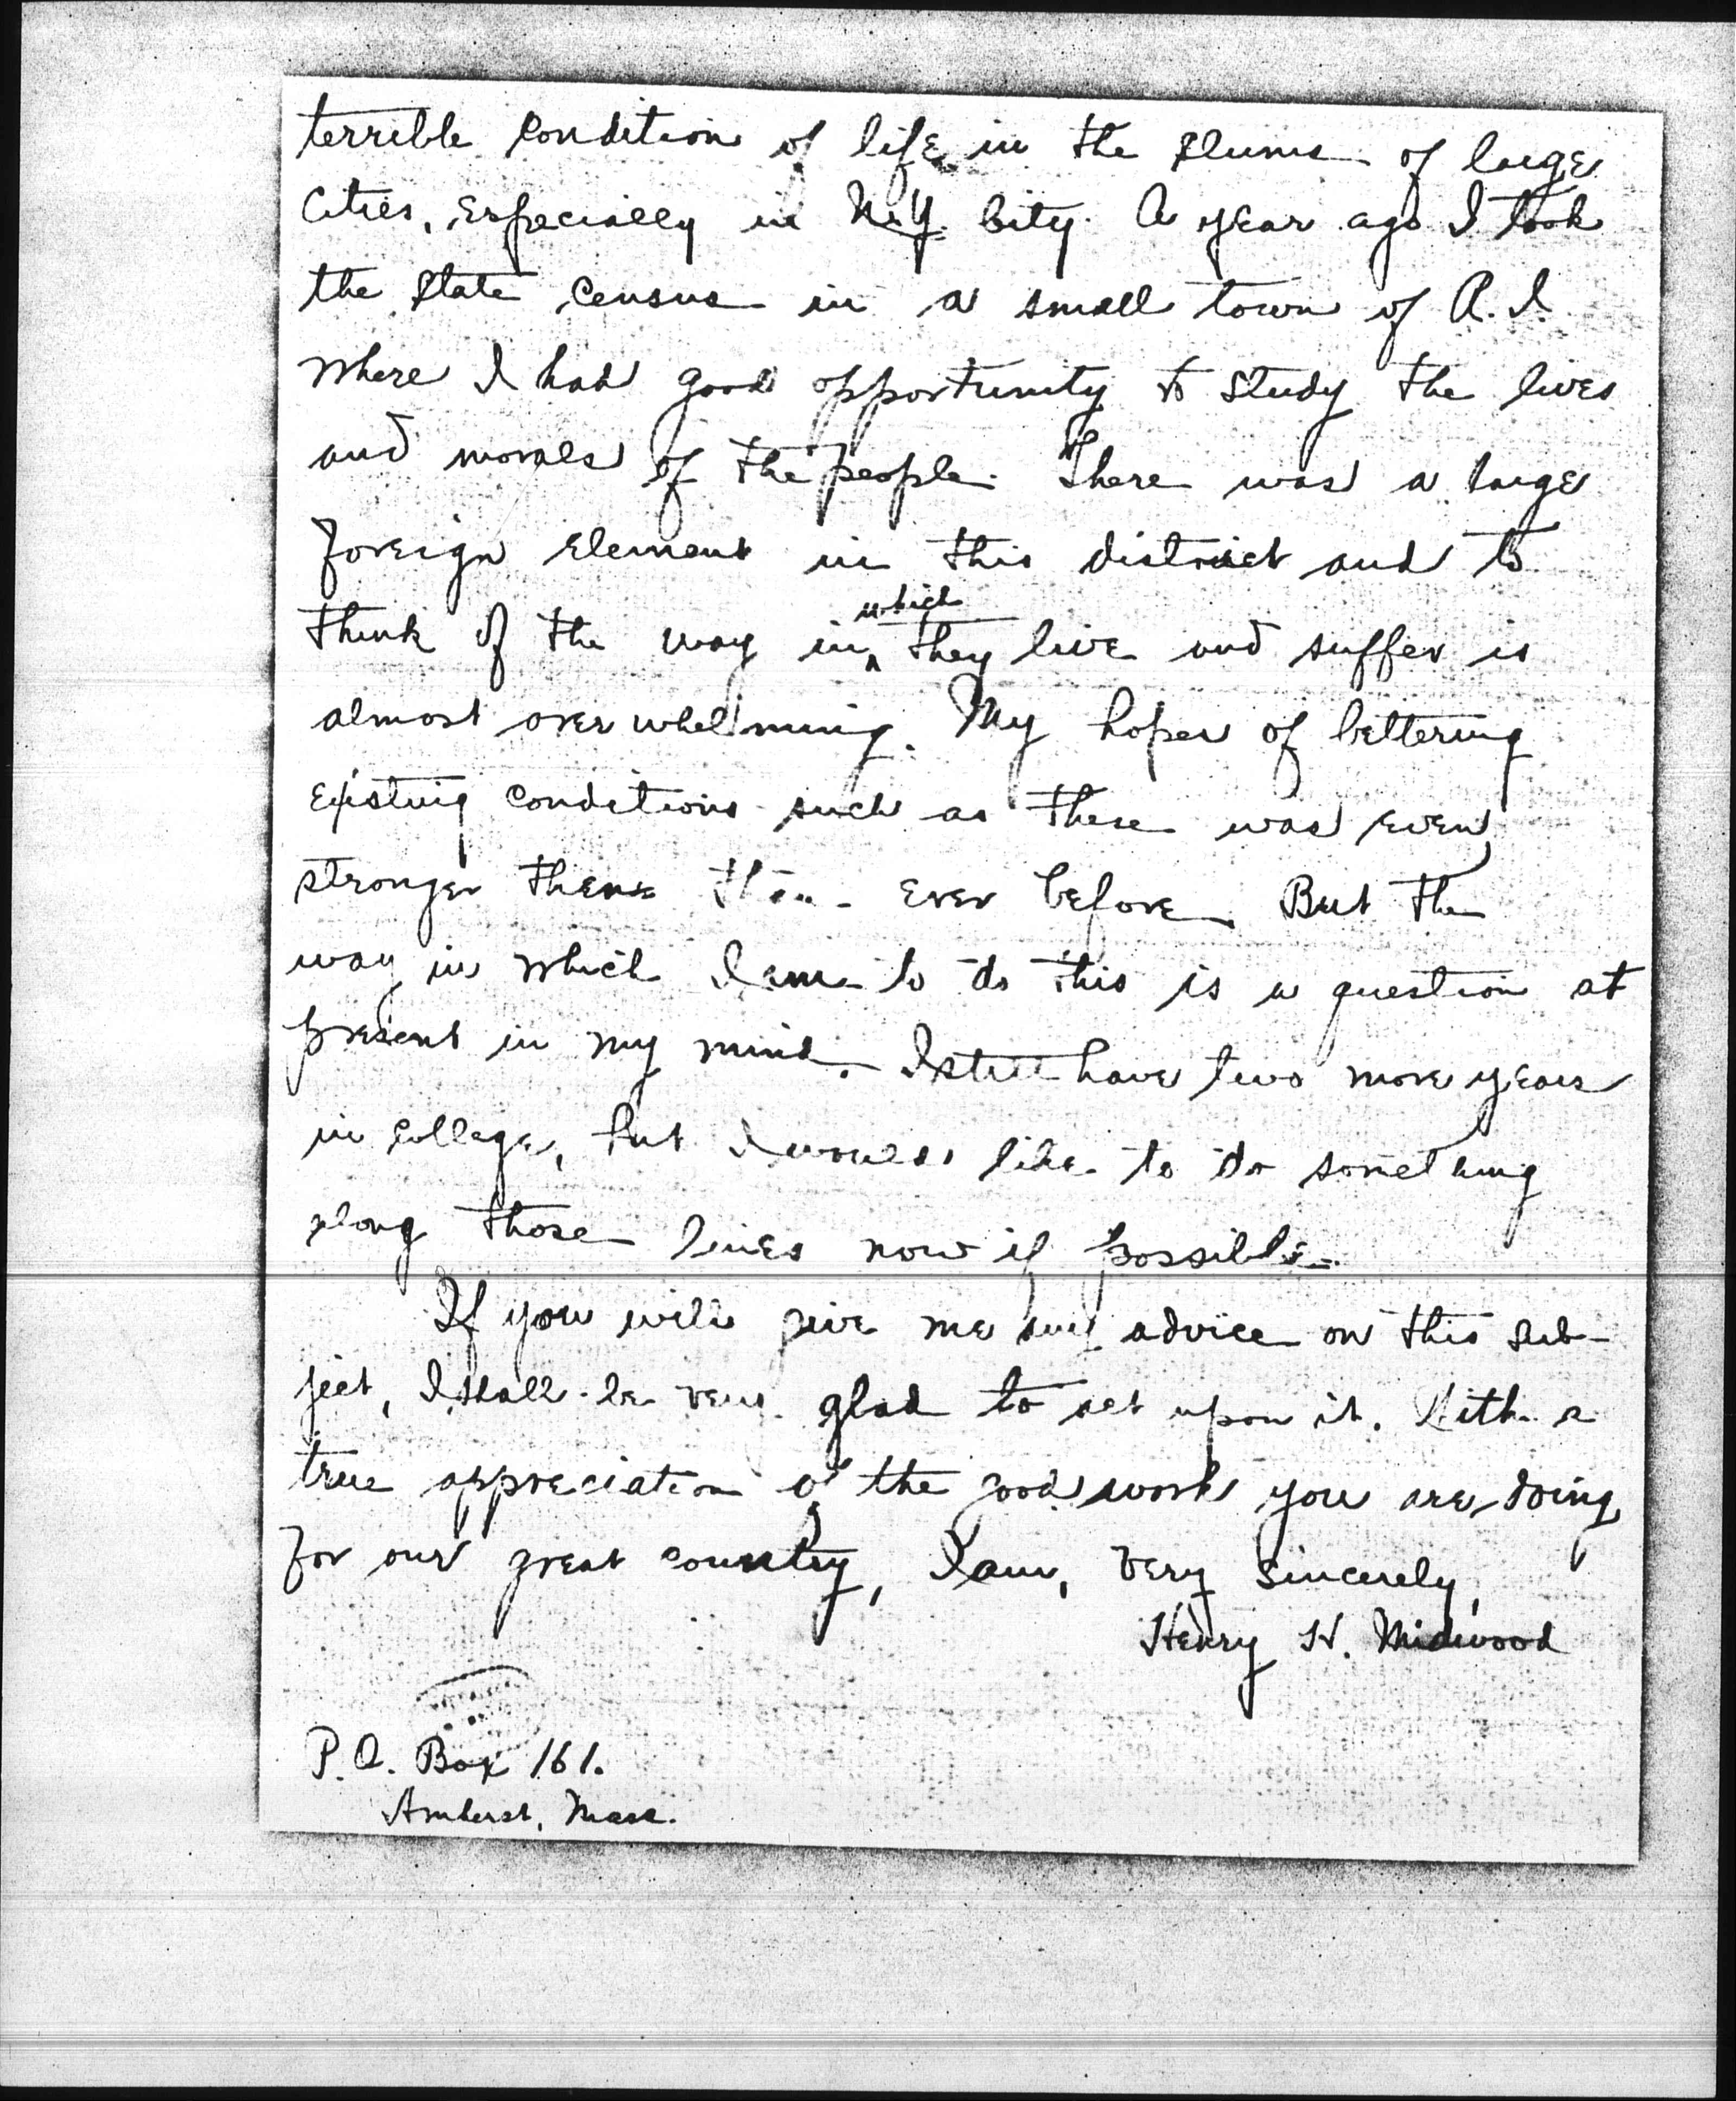 terrible condition of life in the slums of large
cities, especially in N.Y. City. A year ago I took
the State Census in a small town of R.I.
where I had good opportunity to study the lives
and morals of the people. There was a large
foreign element in this district and to
which
think of the way in ^ they live and suffer is
almost overwhelming. My hopes of bettering
existing conditions such as these was even
stronger then than ever before. But the
way in which I am to do this is a question at
present in my mind. I still have two more years
in college, but I would like to do something
along those lines now if possible.
If you will give me any advice on this sub-
ject, I shall be very glad to act upon it. With a
true appreciation of the good work you are doing
for our great country, I am, very sincerely,
Henry H. Midwood
P.O. Box 161.
Amherst, Mass.